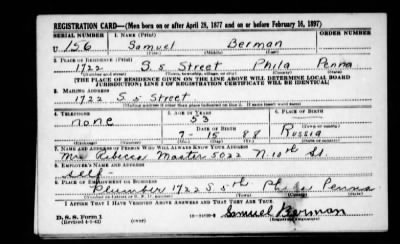 REGISTRATION CARD—(Men born on or after April 28, 1877 and on or before February 16, 1897)
SERIAL NUMBER 1. NAME (Print) ORDER NUMBER
U 156 Samuel Berman
(First) (Middle) (Last)
2. PLACE OF RESIDENCE (Print)
1722 S. 5 Street Phila Penna
(Number and street) (Town, township, village, or city) (County) (State)
[THE PLACE OF RESIDENCE GIVEN ON THE LINE ABOVE WILL DETERMINE LOCAL BOARD
JURISDICTION; LINE 2 OF REGISTRATION CERTIFICATE WILL BE IDENTICAL]
3. MAILING ADDRESS
1722 S 5 Street
[Mailing address if other than place indicated on line 2. If same insert word same]
4. TELEPHONE 5. AGE IN YEARS 6. PLACE OF BIRTH
none 53
DATE OF BIRTH
7 - 15 88 Russia
(Mo.) (Day) (Yr.) (State or country)
7. NAME AND ADDRESS OF PERSON WHO WILL ALWAYS KNOW YOUR ADDRESS
Mrs Rebecca Master 5022 N. 10th St.
8. EMPLOYER'S NAME AND ADDRESS
Self -
9. PLACE OF EMPLOYMENT OR BUSINESS
Plumber 1722 S 5th Phila Penna
(Number and street or R. F. D. number) (Town) (County) (State)
I AFFIRM THAT I HAVE VERIFIED ABOVE ANSWERS AND THAT THEY ARE TRUE.
D. S. S. Form 1 Samuel Berman
(Revised 4-1-42) (over) (Registrant's signature)